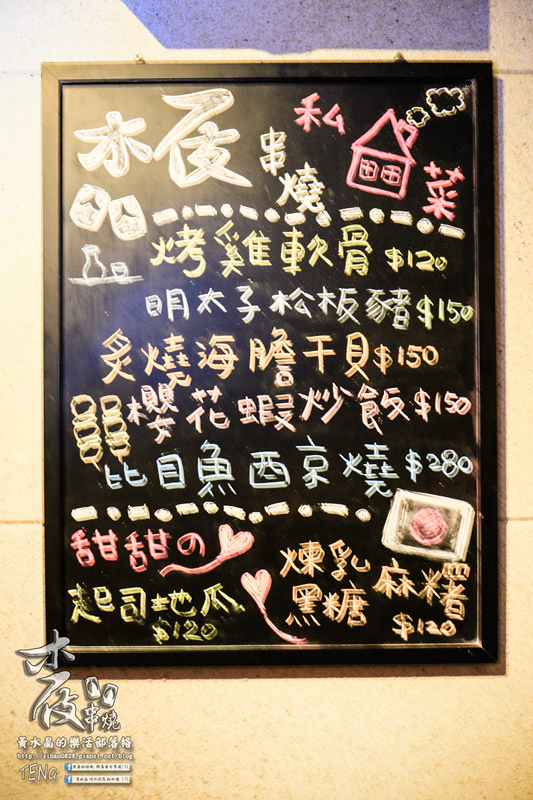 木夜串燒
私菜
烤雞軟骨 $120
明太子松板豬 $150
炙燒海膽干貝 $150
櫻花蝦炒飯 $150
比目魚西京燒 $280
甜甜の
起司地瓜
$120
煉乳
黑糖
麻糬
$120
木夜串燒
黃水晶的樂活部落格
http://sihan0828.pixnet.net/blog
TENG